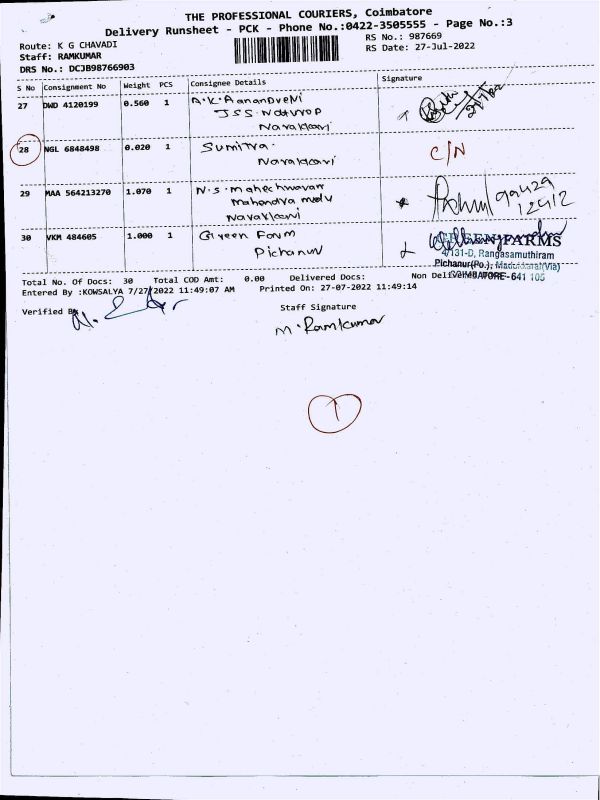 THE PROFESSIONAL COURIERS, Coimbatore
Delivery Runsheet - PCK - Phone No.:0422-3505555 - Page No.:3
Route: K G CHAVADI
RS No.: 987669
Staff: RAMKUMAR
RS Date: 27-Jul-2022
DRS No.: DCJB98766903
S No Consignment No Weight PCS Consignee Details Signature
27 DWD 4120199 0.560 1 A.K.Aanandveni
JSS
Navakkarai
28 NGL 6848498 0.020 1 Sumitra. C/N
Navakkarai
29 MAA 564213270 1.070 1 N.S. maheshwaran 99429
Mahendra 12412
Navakkarai
30 VKM 484605 1.000 1 Green Farm
GREENY FARMS
Pichanur
4/131-D, Rangasamuthiram
Pichanur(Po.), Madukkarai(Via)
COIMBATORE-641 105
Total No. Of Docs: 30 Total COD Amt: 0.00 Delivered Docs: Non
Entered By :KOWSALYA 7/27/2022 11:49:07 AM Printed On: 27-07-2022 11:49:14
Verified By
Staff Signature
M. Ramkumar
1